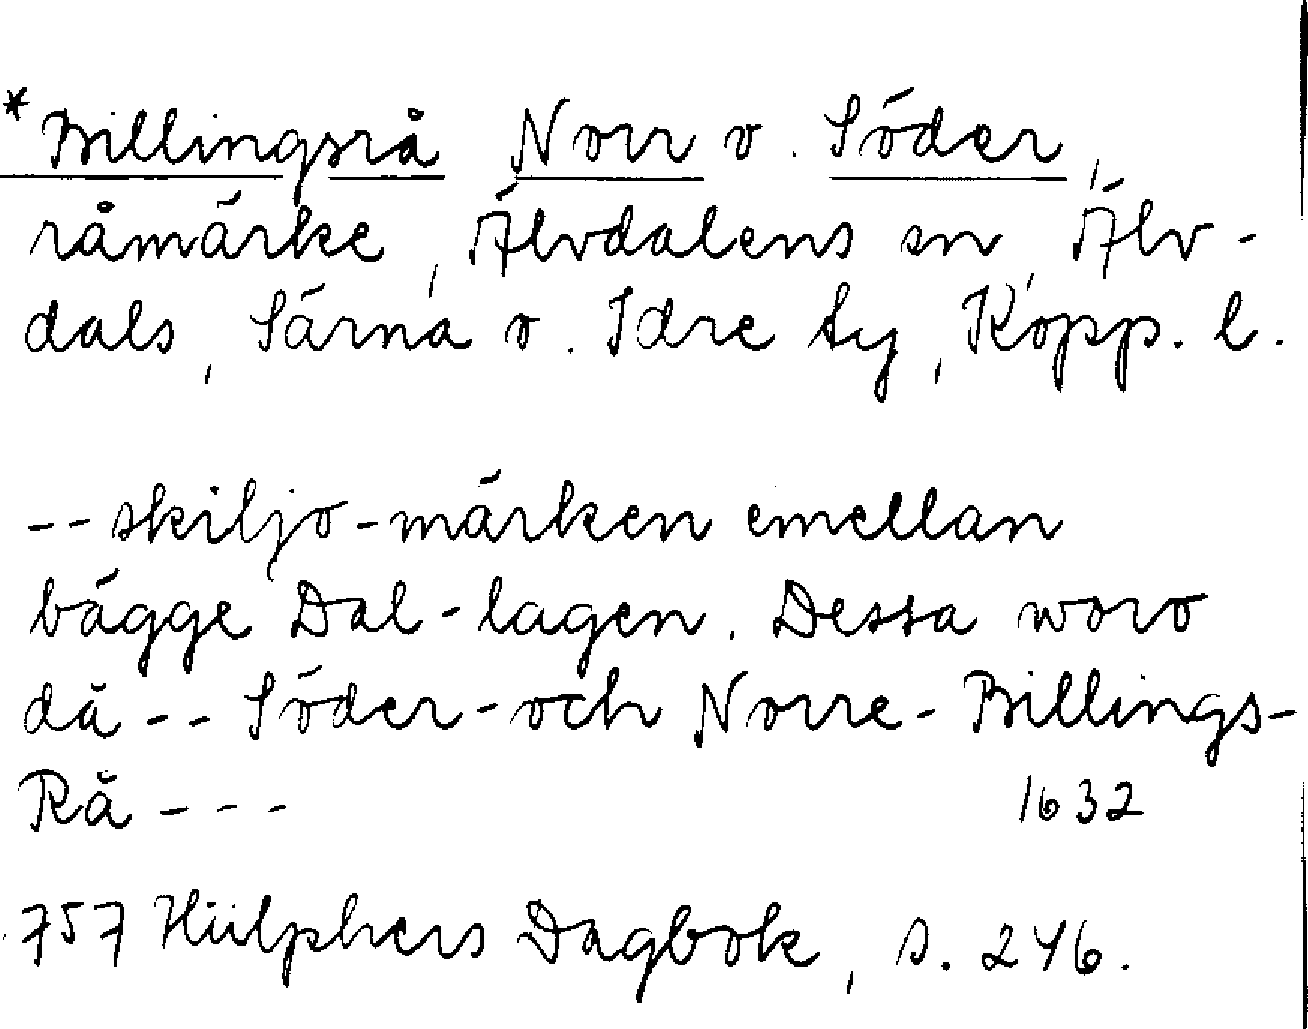 *Billingsrå Norr o. Söder,
råmärke, Älvdalens sn, Älv-
dals, Särna o. Idre tg, Kopp. l.
-- skiljo-märken emellan
bägge Dal-lagen. Dessa woro
då -- Söder- och Norre-Billings-
Rå --- 1632
757 Hülphers Dagbok, s. 246.